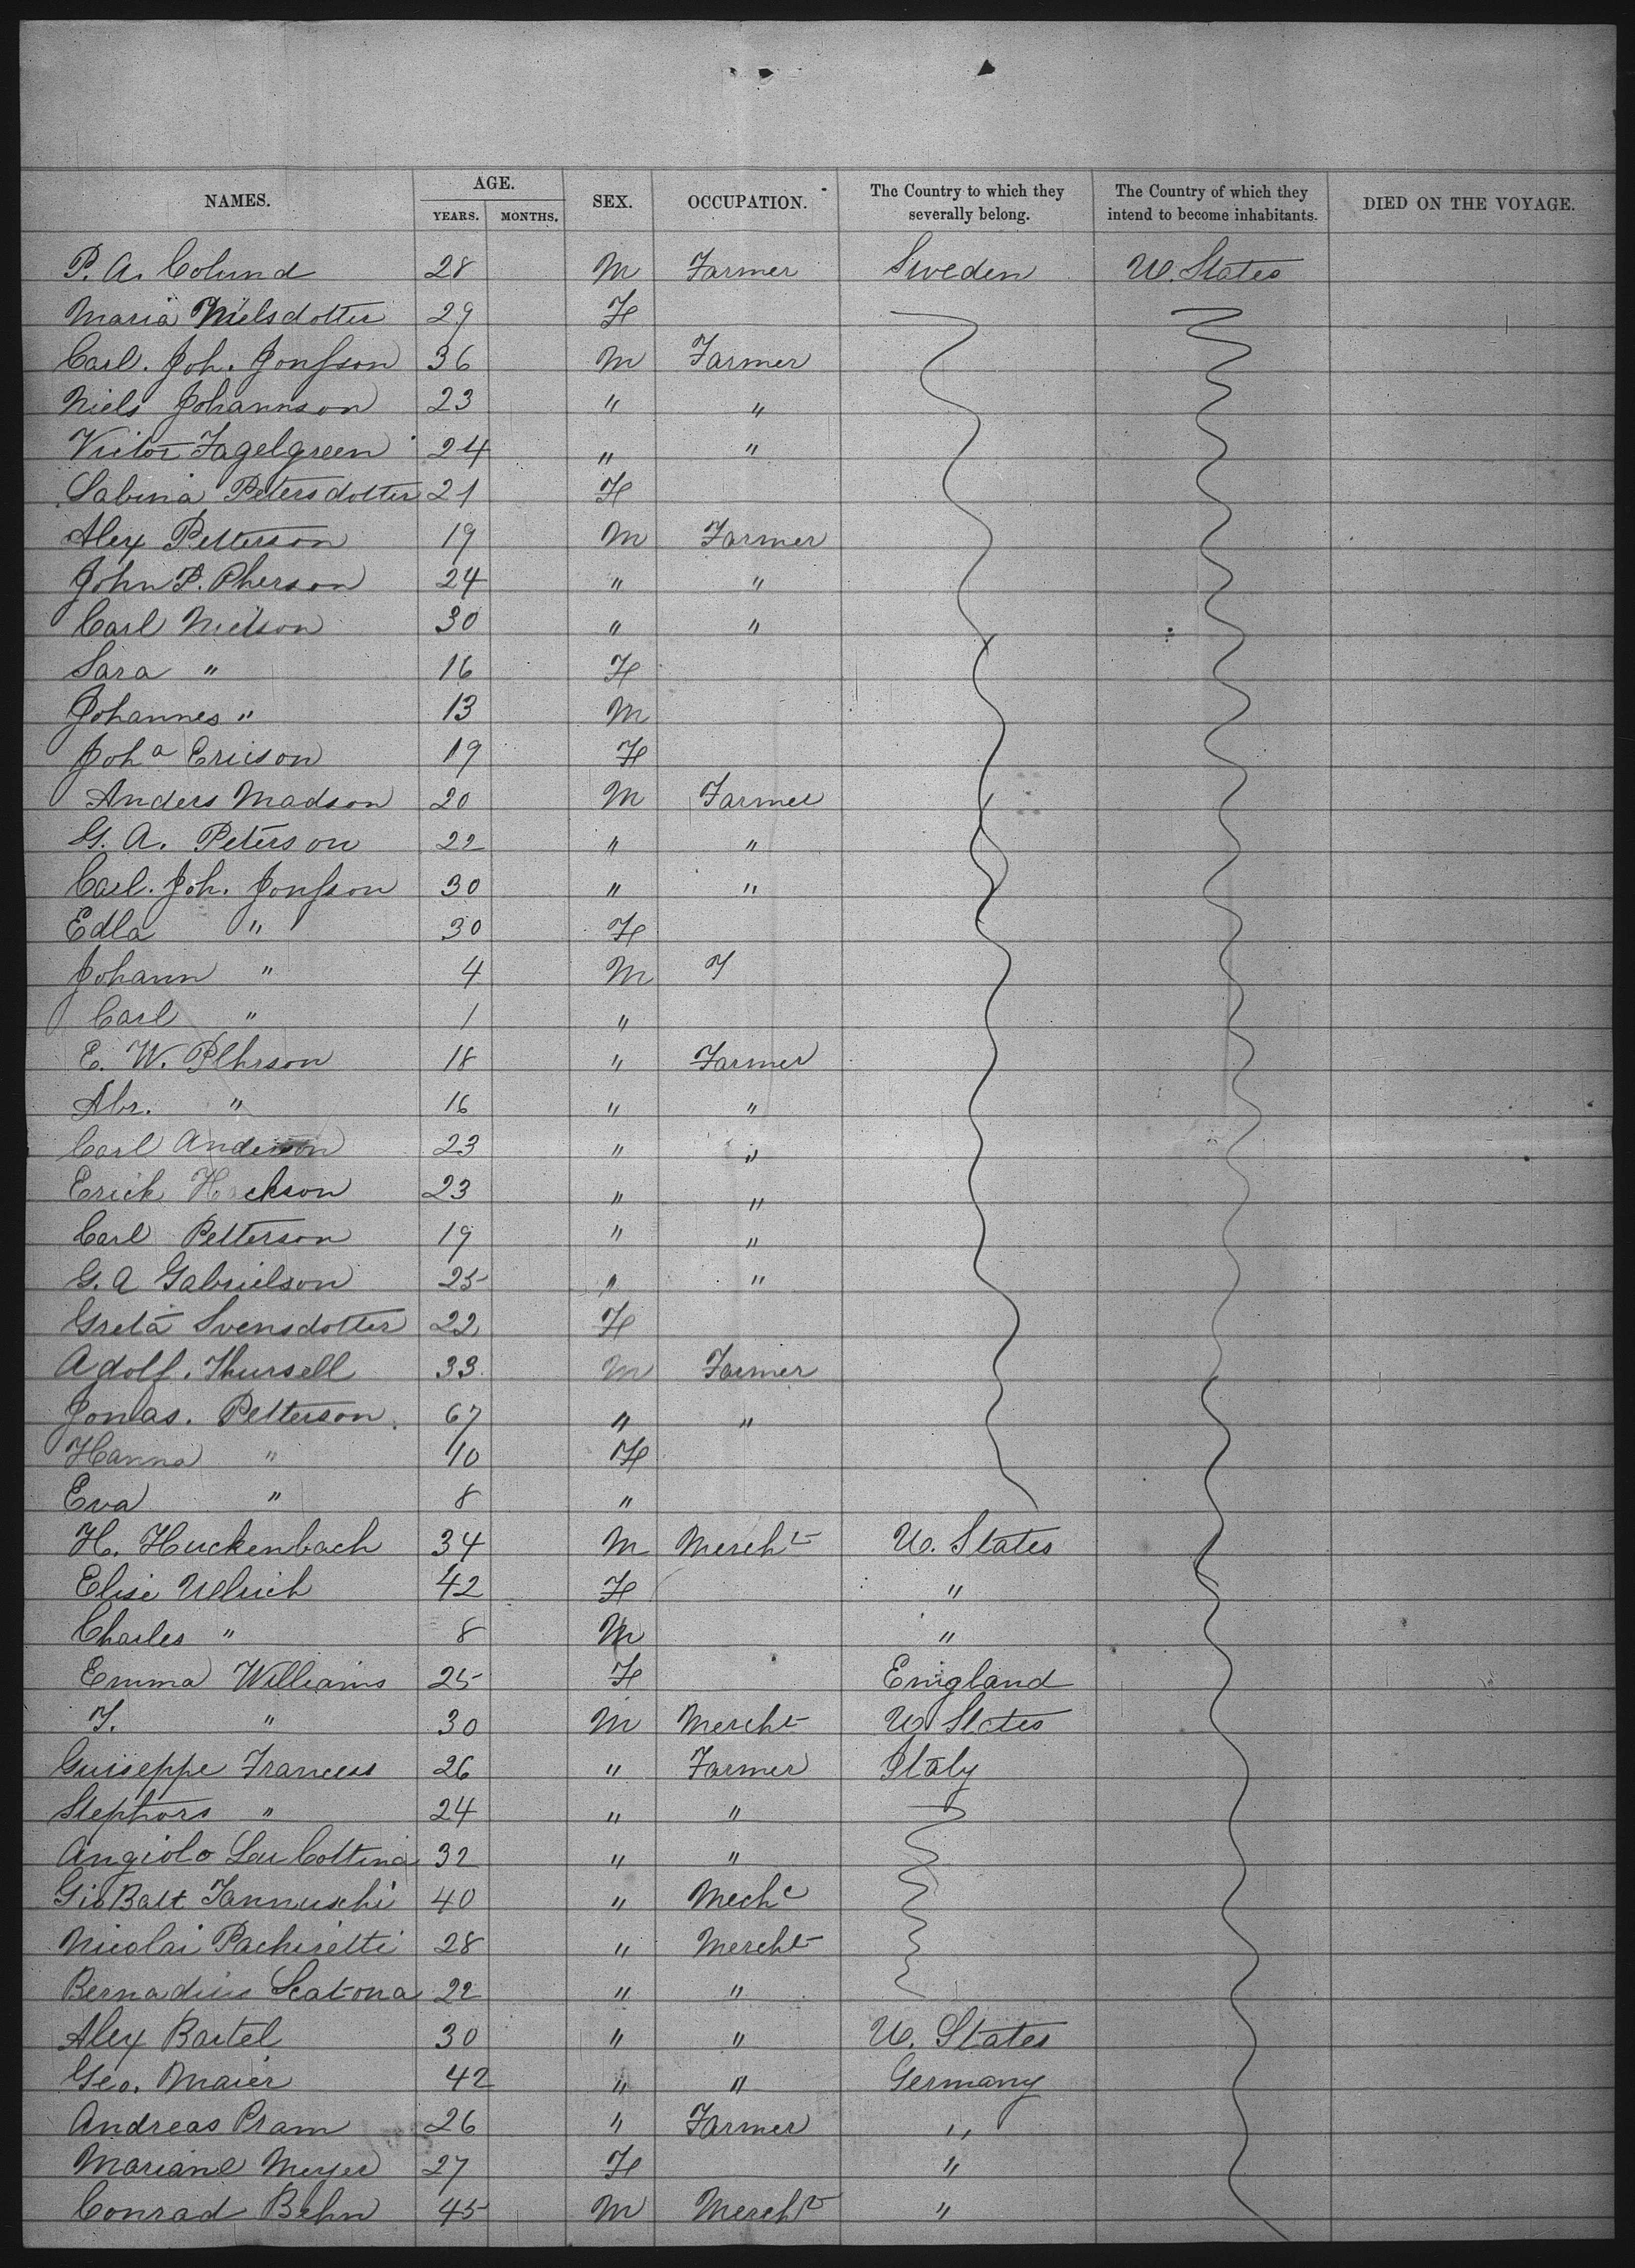 NAMES. AGE. YEARS. MONTHS. SEX. OCCUPATION. The Country to which they severally belong. The Country of which they intend to become inhabitants. DIED ON THE VOYAGE.
P. A. Colund 28 M Farmer Sweden U. States
Maria Nielsdotter 29 F
Carl. Joh. Jonsson 36 M Farmer
Niels Johannson 23 " "
Victor Fagelgreen 24 " "
Sabina Petersdotter 21 F
Alex Petterson 19 M Farmer
John P. Pherson 24 " "
Carl Nielson 30 " "
Sara " 16 F
Johannes " 13 M
Joh a Ericson 19 F
Anders Madson 20 M Farmer
G. A. Peterson 22 " "
Carl. Joh. Jonsson 30 " "
Edla " 30 F
Johann " 4 M F
Carl " 1 "
E. W. Pehrson 18 " Farmer
Abr. " 16 " "
Carl Anderson 23 " "
Erick 23 " "
Carl Petterson 19 " "
G. A Gabrielson 25 " "
Greta Svensdotter 22 F
Adolf. Thursell 33 M Farmer
Jonas. Petterson 67 " "
Hanna " 10 F
Eva " 8 "
H. Huckenbach 34 M Mercht U. States
Elise Ullrich 42 F "
Charles " 8 M "
Emma Williams 25 F England
T. " 30 M Mercht U. States
Guiseppe Francess 26 " Farmer Italy
Stephors " 24 " "
Angiolo Lau Cottina 32 " "
Gio Batt Iannuschi 40 " Mechc
Nicolai Pachiretti 28 " Mercht
Bernadius Scatona 22 " "
Alex Bartel 30 " " U. States
Geo. Maier 42 " " Germany
Andreas Pram 26 " Farmer "
Mariane Meyer 27 F "
Conrad Behn 45 M Mercht "